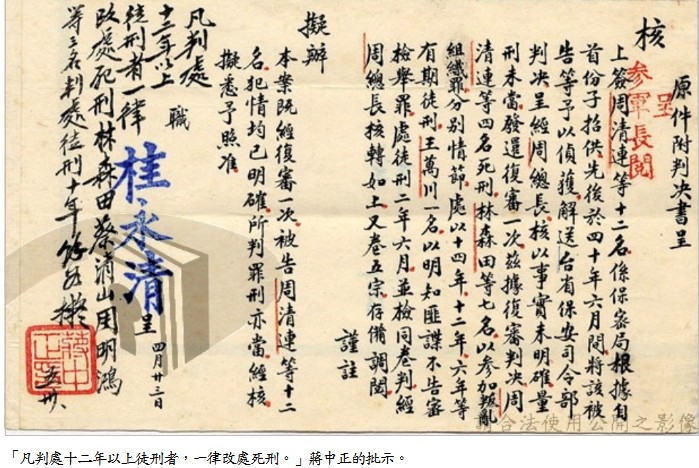 原件附判決書呈
呈
參軍長閱
核
上簽周清連等十二名係保密局根據自
首份子招供先後於四十年六月間將該被
告等予以偵獲解送台省保安司令部
判決呈經周總長核以事實未明確量
刑未當發還復審一次茲據復審判決周
清連等四名死刑林森田等七名以參加叛亂
組織罪分別情節處以十四年十二年六年等
有期徒刑王萬川一名以明知匪諜不告審
檢舉罪處徒刑二年六月並檢同卷判經
周總長核轉如上又卷五宗存備調閱
謹註
擬辦
本案既經復審一次被告周清連等十二
名犯情均已明確所判罪刑亦當經核
擬悉予照准
職
桂永清
呈
四月廿三日
凡判處
十二年以上
徒刑者一律
改處死刑林森田蔡消山周明鴻
等三名判處徒刑十年餘如擬
蔣中正印
五廿
請合法使用公開之影像
「凡判處十二年以上徒刑者，一律改處死刑。」蔣中正的批示。